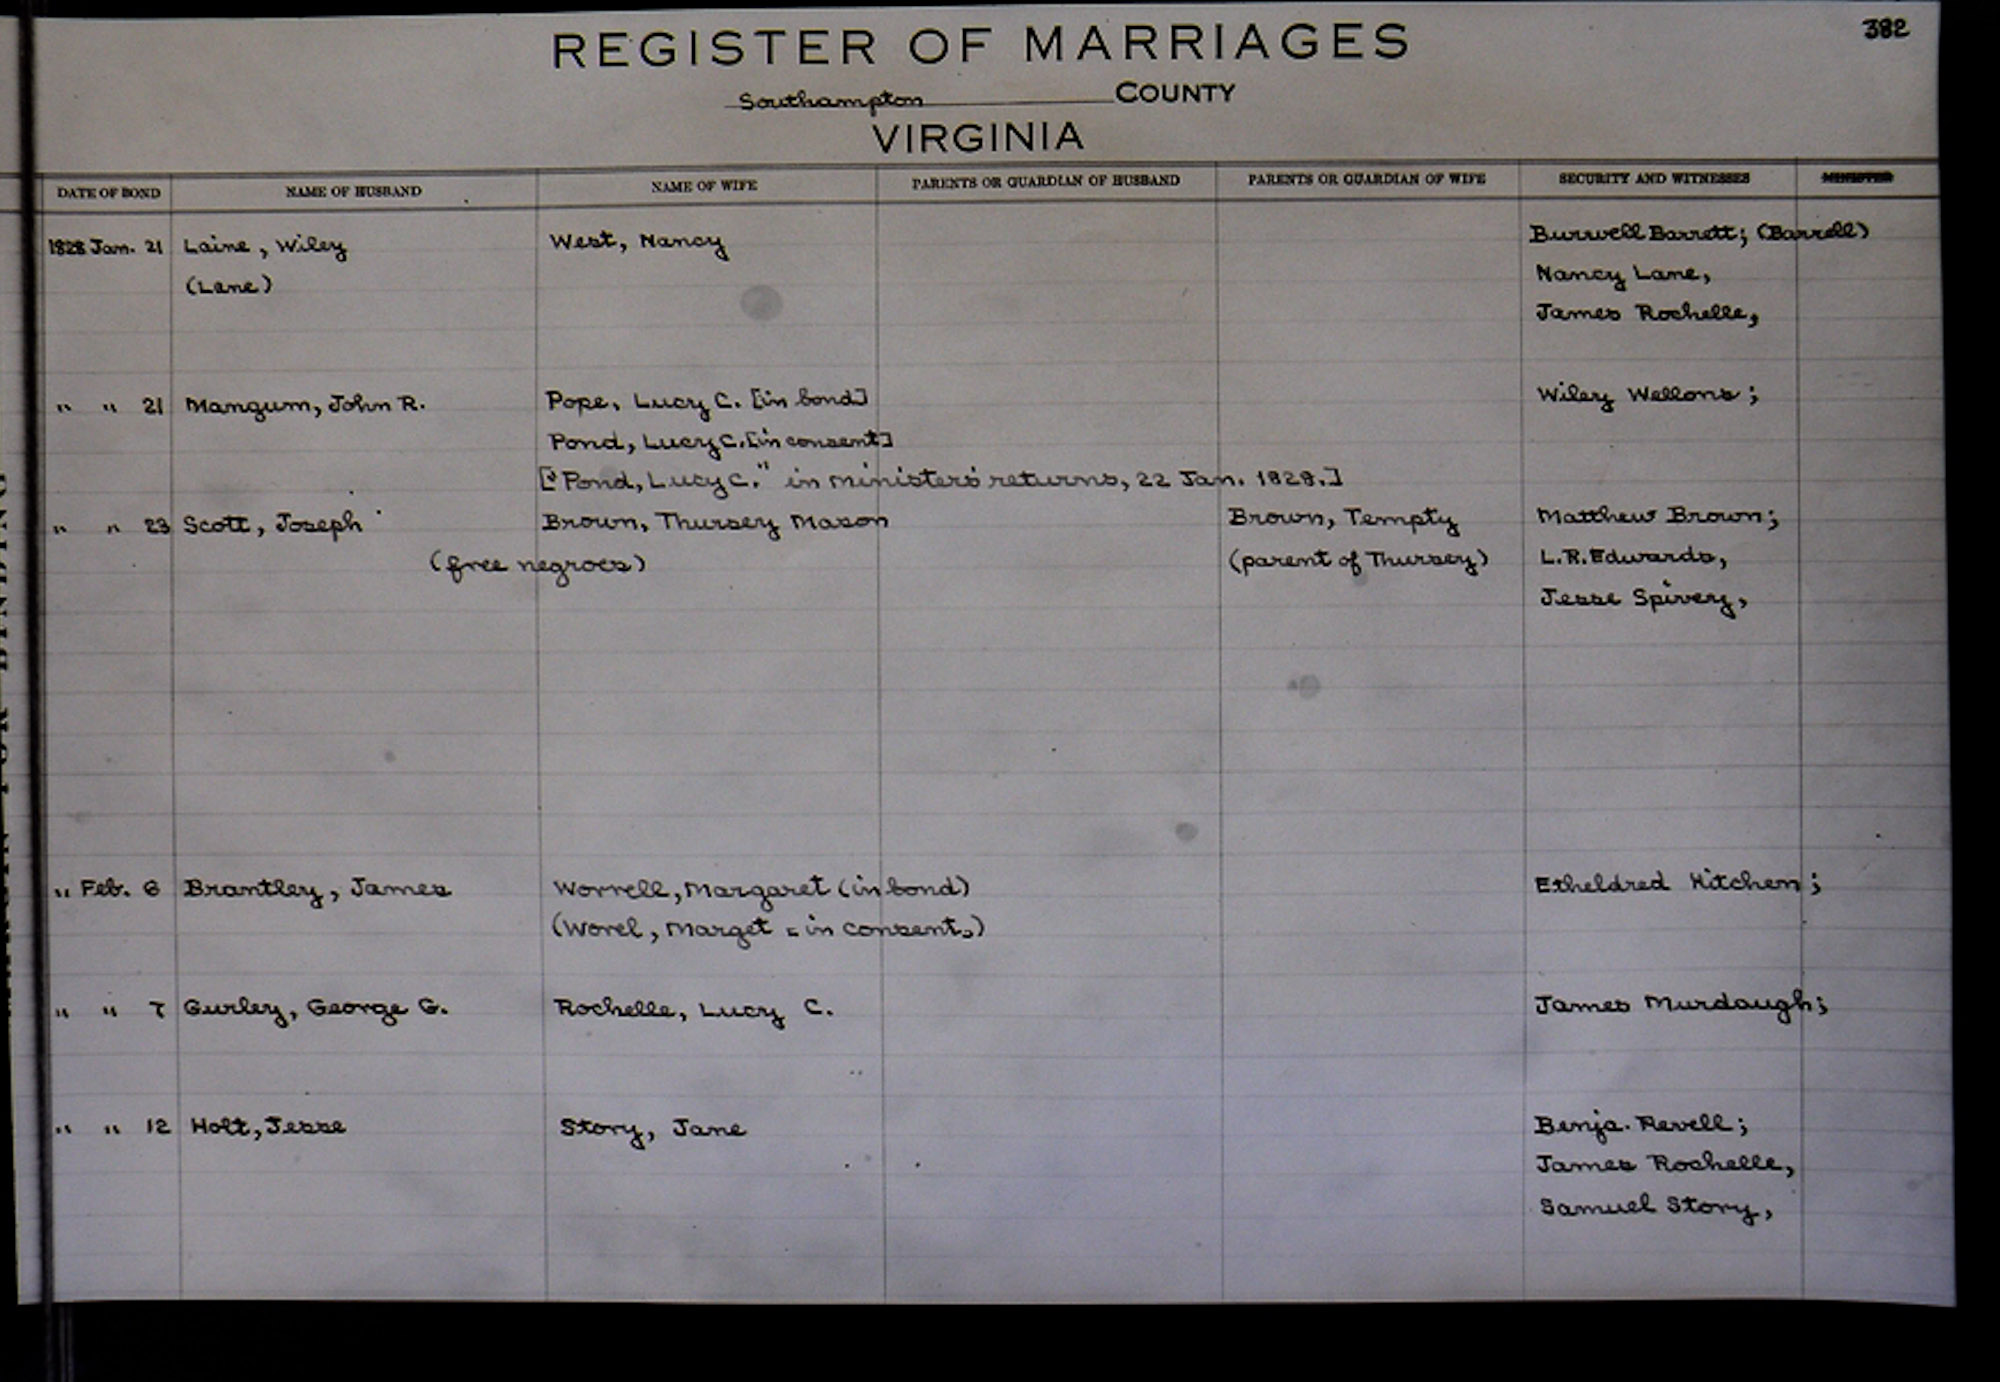 382
REGISTER OF MARRIAGES
Southampton COUNTY
VIRGINIA
DATE OF BOND NAME OF HUSBAND NAME OF WIFE PARENTS OR GUARDIAN OF HUSBAND PARENTS OR GUARDIAN OF WIFE SECURITY AND WITNESSES MINISTER
1828 Jan. 21 Laine, Wiley West, Nancy Burwell Barrett; (Barrell)
(Lane) Nancy Lane,
James Rochelle,
" " 21 Mangum, John R. Pope, Lucy C. [in bond] Wiley Wellons;
Pond, Lucy C. [in consent]
["Pond, Lucy C." in ministers' returns, 22 Jan. 1828.]
" " 23 Scott, Joseph Brown, Thursey Mason Brown, Tempty Matthew Brown;
(free negroes) (parent of Thursey) L.R. Edwards,
Jesse Spivey,
" Feb. 6 Brantley, James Worrell, Margaret (in bond) Etheldred Kitchen;
(Worel, Marget = in consent.)
" " 7 Gurley, George G. Rochelle, Lucy C. James Murdaugh;
" " 12 Holt, Jesse Story, Jane Benja. Revell;
James Rochelle,
Samuel Story,